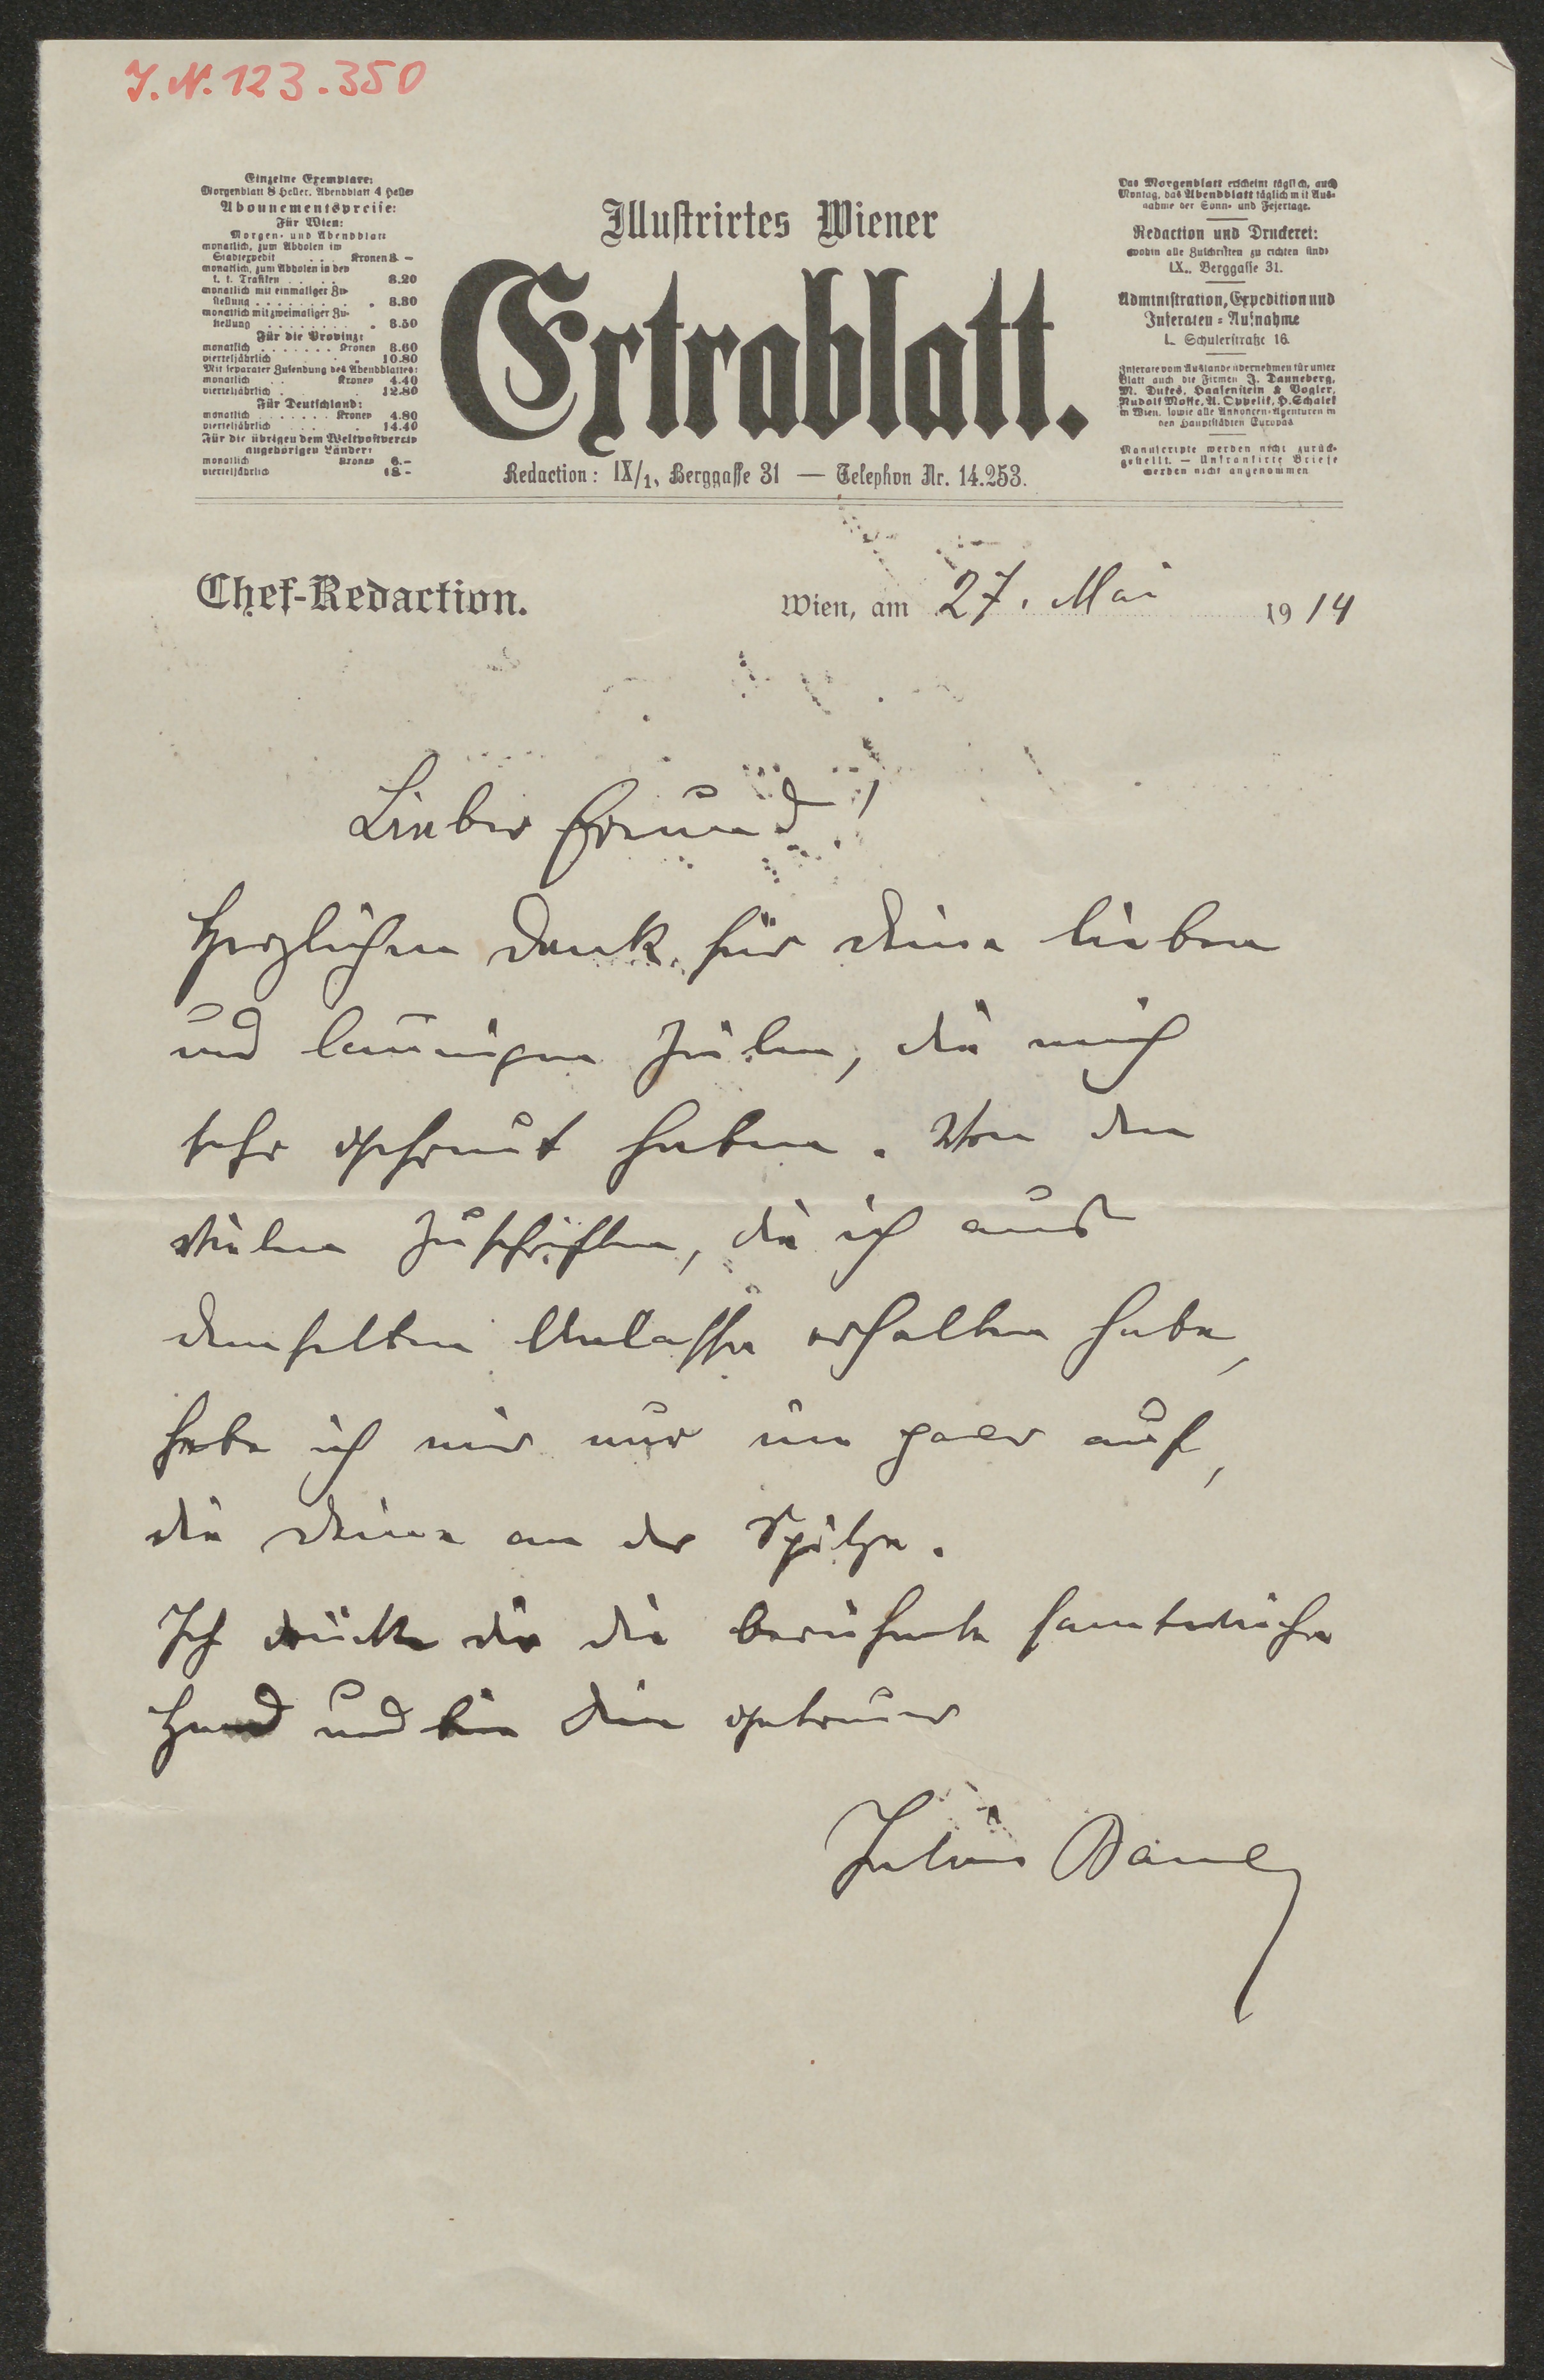 I.N. 123.350
Einzelne Exemplare:
Morgenblatt 8 Heller, Abendblatt 4 Heller
Abonnementspreise:
Für Wien:
Morgen- und Abendblatt
monatlich, zum Abholen im
Stadtexpedit . . . Kronen 3.-
monatlich, zum Abholen in den
k. k. Trafiken . . . 3.20
monatlich mit einmaliger Zu-
stellung . . . 3.30
monatlich mit zweimaliger Zu-
stellung . . . 3.50
Für die Provinz:
monatlich . . . Kronen 3.60
vierteljährlich . . . 10.80
Mit separater Zusendung des Abendblattes:
monatlich . . . Kronen 4.40
vierteljährlich . . . 12.80
Für Deutschland:
monatlich . . . Kronen 4.80
vierteljährlich . . . 14.40
Für die übrigen dem Weltpostverein
angehörigen Länder:
monatlich Kronen 6.-
vierteljährlich 18.-
Illustrirtes Wiener
Extrablatt.
Redaction: IX/1, Berggasse 31 — Telephon Nr. 14.253.
Das Morgenblatt erscheint täglich, auch
Montag, das Abendblatt täglich mit Aus-
nahme der Sonn- und Feiertage.
Redaction und Druckerei:
wohin alle Zuschriften zu richten sind:
IX., Berggasse 31.
Administration, Expedition und
Inseraten-Aufnahme
I., Schulerstraße 16.
Inserate vom Auslande übernehmen für unser
Blatt auch die Firmen J. Danneberg,
M. Dukes, Haasenstein & Vogler,
Rudolf Mosse, A. Oppelik, H. Schalek
in Wien, sowie alle Annoncen-Agenturen in
den Hauptstädten Europas
Manuscripte werden nicht zurück-
gestellt. — Unfrankirte Briefe
werden nicht angenommen
Chef-Redaction.
Wien, am 27. Mai 1914
Lieber Freund!
Herzlichen Dank für Deine lieben
und launigen Zeilen, die mich
sehr gefreut haben. Von den
vielen Zuschriften, die ich aus
demselben Anlasse erhalten habe,
hebe ich mir nur ein paar auf,
die Deine an der Spitze.
Ich drücke dir die berühmte samtweiche
Hand und bin Dein getreuer
Julius Bauer